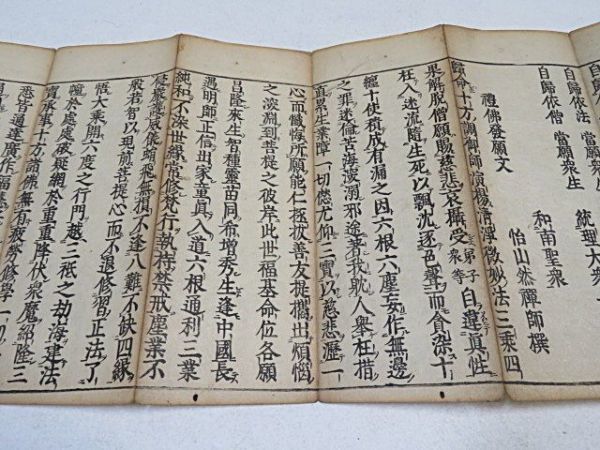 自歸依法　當願衆生
自歸依僧　當願衆生　統理大衆
和南聖衆
禮佛發願文
怡山然禪師撰
歸命十方調御師演揚清淨微妙法三乘四
果解脫僧願賜慈悲哀攝受弟子衆等自違真性
枉入迷流隨生死以飄沉逐色聲而貪染十
纏十使積成有漏之因六根六塵妄作無邊
之罪迷淪苦海深溺邪途著我耽人舉枉措
直累生業障一切愆尤仰三寶以慈悲瀝一
心而懺悔所願能仁拯拔善友提攜出煩惱
之深淵到菩提之彼岸此世福基命位各願
昌隆來生智種靈苗同布增秀生逢中國長
遇明師正信出家童真入道六根通利三業
純和不染世緣常修梵行執持禁戒塵業不
侵嚴護威儀蜎飛無損不逢八難不缺四緣
般若智以現前菩提心而不退修習正法了
悟大乘開六度之行門越三祇之劫海建法
幢於處處破疑網於重重降伏衆魔紹隆三
寶承事十方諸佛無有疲勞修學一切
悉皆通達廣作福